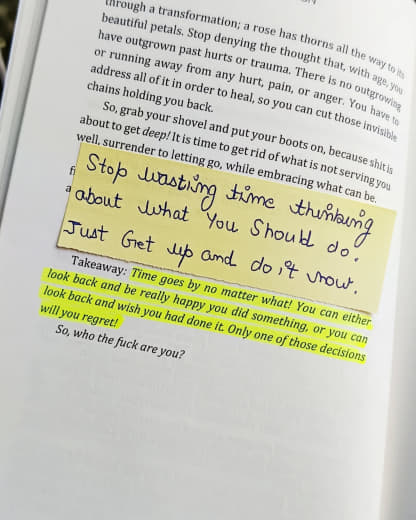 through a transformation; a rose has thorns all the way to its
beautiful petals. Stop denying the thought that, with age, you
have outgrown past hurts or trauma. There is no outgrowing
or running away from any hurt, pain, or anger. You have to
address all of it in order to heal, so you can cut those invisible
chains holding you back.
So, grab your shovel and put your boots on, because shit is
about to get deep! It is time to get rid of what is not serving you
well, surrender to letting go, while embracing what can be.
Stop wasting time thinking
about what You Should do.
Just Get up and do it now.
Takeaway: Time goes by no matter what! You can either
look back and be really happy you did something, or you can
look back and wish you had done it. Only one of those decisions
will you regret!
So, who the fuck are you?